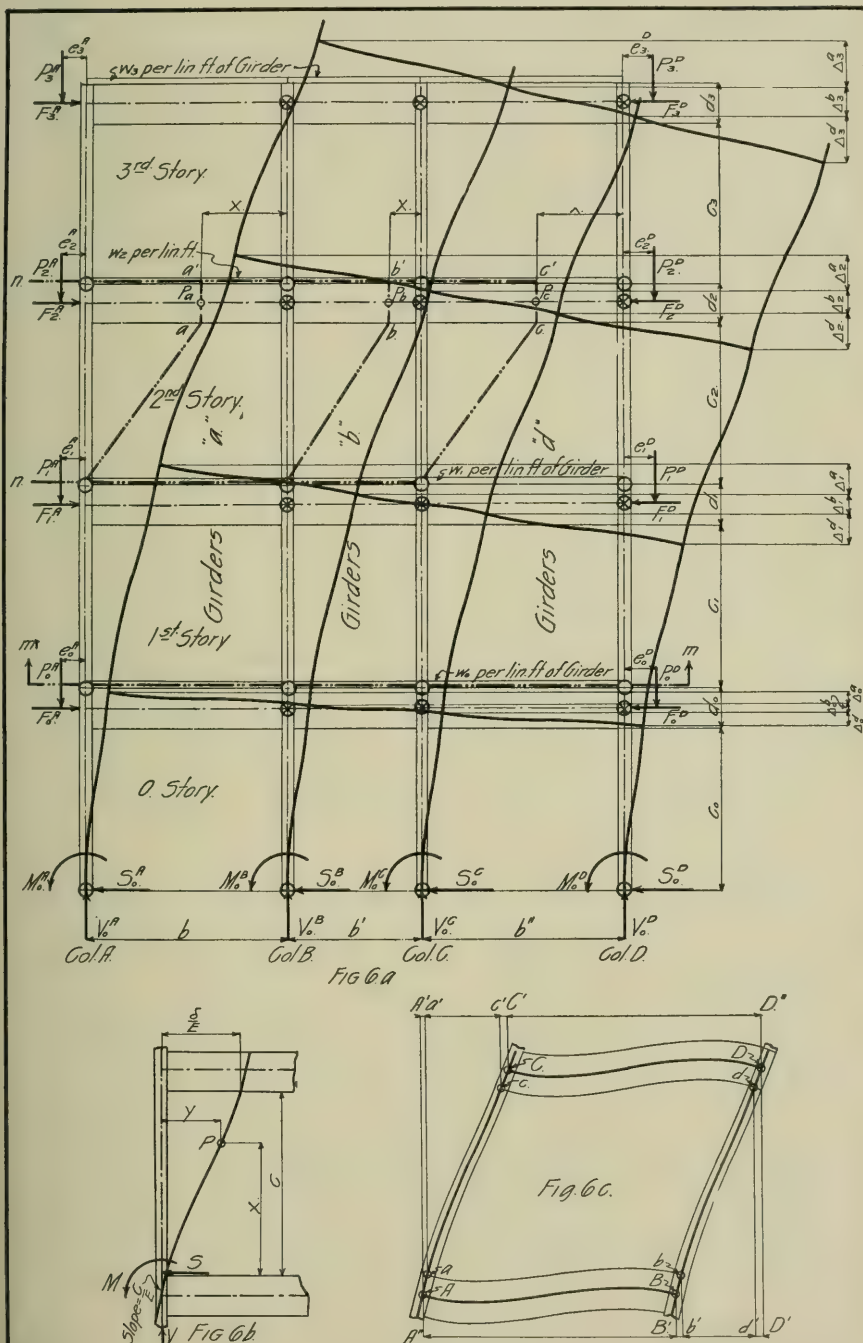 e₃ᴬ
P₃ᴬ
w₃ per lin ft. of Girder
F₃ᴬ
e₃ᴰ
P₃ᴰ
F₃ᴰ
d₃
Δ₃ᵃ
Δ₃ᵇ
Δ₃ᵈ
3rd Story.
C₃
e₂ᴬ
P₂ᴬ
w₂ per lin. ft.
n
F₂ᴬ
X
a'
Pa
a
X
b'
Pb
b
c'
c
e₂ᴰ
P₂ᴰ
F₂ᴰ
d₂
Δ₂ᵃ
Δ₂ᵇ
Δ₂ᵈ
2nd Story.
"a"
"b"
"d"
C₂
e₁ᴬ
P₁ᴬ
n
F₁ᴬ
w₁ per lin ft of Girder
e₁ᴰ
P₁ᴰ
F₁ᴰ
d₁
Δ₁ᵃ
Δ₁ᵇ
Δ₁ᵈ
Girders
Girders
Girders
1st Story
C₁
m
e₀ᴬ
P₀ᴬ
F₀ᴬ
w₀ per lin. ft of Girder
e₀ᴰ
P₀ᴰ
F₀ᴰ
m
d₀
Δ₀ᵃ
Δ₀ᵇ
Δ₀ᵈ
0. Story.
C₀
M₀ᴬ S₀ᴬ M₀ᴮ S₀ᴮ M₀ᶜ S₀ᶜ M₀ᴰ S₀ᴰ
V₀ᴬ b V₀ᴮ b' V₀ᶜ b" V₀ᴰ
Col. A. Col B. Col. C. Col. D.
FIG 6.a
δ/E
y
P
C
X
M
S
Slope = C/E
V
FIG 6b.
A' a' c' C' D."
C.
c.
D
d
Fig. 6c.
a
A
b
B
A" B' b' d' D'